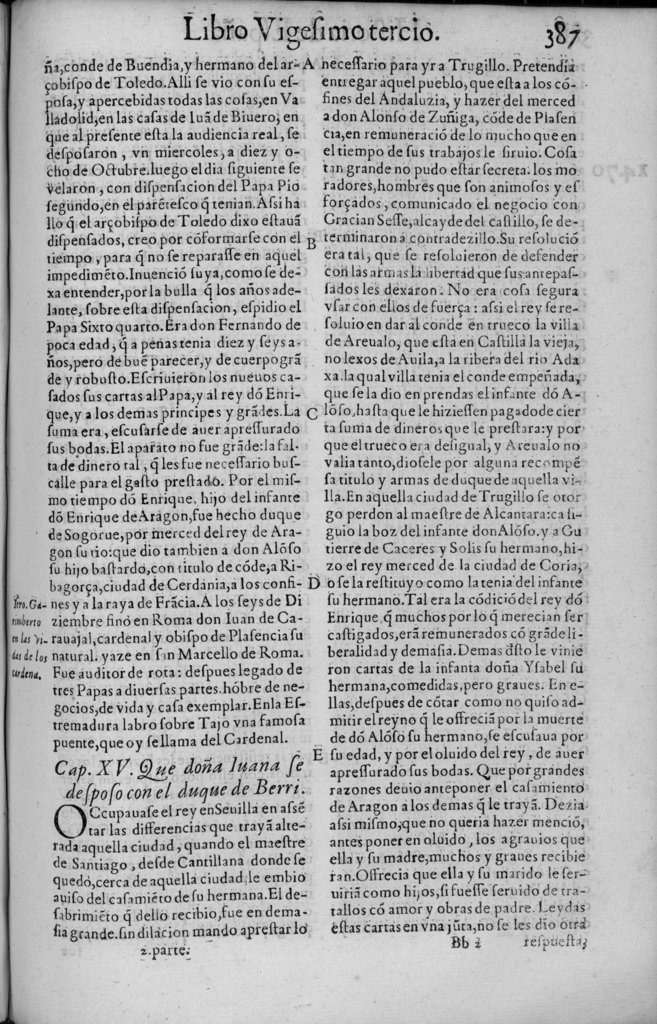 Libro Vigesimo tercio. 387
ña,conde de Buendia,y hermano del ar-
çobispo de Toledo. Alli se vio con su es-
posa,y apercebidas todas las cosas,en Va
lladolid,en las casas de Iuã de Biuero, en
que al presente esta la audiencia real, se
desposaron, vn miercoles, a diez y o-
cho de Octubre. luego el dia siguiente se
velaron, con dispensacion del Papa Pio
segundo,en el parẽtesco q̃ tenian. Assi ha
llo q̃ el arçobispo de Toledo dixo estauã
dispensados, creo por cõformarse con el
tiempo, para q̃ no se reparasse en aquel
impedimẽto. Inuenció suya,como se de-
xa entender,por la bulla q̃ los años ade-
lante, sobre esta dispensacion, espidio el
Papa Sixto quarto. Era don Fernando de
poca edad, q̃ a penas tenia diez y seys a-
ños,pero de buẽ parecer,y de cuerpo grã
de y robusto. Escriuieron los nueuos ca-
sados sus cartas al Papa,y al rey dõ Enri-
que,y a los demas principes y grãdes. La
suma era, escusarse de auer apressurado
sus bodas. El aparato no fue grãde: la fal-
ta de dinero tal, q̃ les fue necessario bus-
calle para el gasto prestado. Por el mis-
mo tiempo dõ Enrique, hijo del infante
dõ Enrique de Aragon,fue hecho duque
de Sogorue,por merced del rey de Ara-
gon su tio: que dio tambien a don Alõso
su hijo bastardo,con titulo de cõde,a Ri-
bagorça,ciudad de Cerdania,a los confi-
nes y a la raya de Frãcia. A los seys de Di
ziembre finò en Roma don Iuan de Ca-
rauajal,cardenal y obispo de Plasencia su
natural. yaze en san Marcello de Roma.
Fue auditor de rota: despues legado de
tres Papas a diuersas partes. hõbre de ne-
gocios,de vida y casa exemplar. En la Es-
tremadura labro sobre Tajo vna famosa
puente,que oy se llama del Cardenal.
Cap. XV. Que doña Iuana se
desposo con el duque de Berri.
OCcupauase el rey en Seuilla en assẽ
tar las differencias que trayã alte-
rada aquella ciudad, quando el maestre
de Santiago, desde Cantillana donde se
quedó,cerca de aquella ciudad, le embio
auiso del casamiẽto de su hermana. El de-
sabrimiẽto q̃ dello recibio,fue en dema-
sia grande. sin dilacion mando aprestar lo
2. parte.
Garimberto
en las vi-
das de los
cardena.
A
B
C
D
E
necessario para yr a Trugillo. Pretendia
entregar aquel pueblo, que esta a los cõ-
fines del Andaluzia, y hazer del merced
a don Alonso de Zuñiga, cõde de Plasen
cia,en remuneració de lo mucho que en
el tiempo de sus trabajos le siruio. Cosa
tan grande no pudo estar secreta. los mo
radores,hombres que son animosos y es
forçados, comunicado el negocio con
Gracian Sesse,alcayde del castillo, se de-
terminaron a contradezillo. Su resolució
era tal, que se resoluieron de defender
con las armas la libertad que sus antepas-
sados les dexaron. No era cosa segura
vsar con ellos de fuerça: assi el rey se re-
soluio en dar al conde en trueco la villa
de Areualo, que esta en Castilla la vieja,
no lexos de Auila,a la ribera del rio Ada
xa. la qual villa tenia el conde empeñada,
que se la dio en prendas el infante dõ A-
lõso,hasta que le hiziessen pagado de cier
ta suma de dineros que le prestara: y por
que el trueco era desigual, y Areualo no
valia tanto,diosele por alguna recompẽ
sa titulo y armas de duque de aquella vi-
lla. En aquella ciudad de Trugillo se otor
go perdon al maestre de Alcantara: ca si-
guio la boz del infante don Alõso. y a Gu
tierre de Caceres y Solis su hermano,hi-
zo el rey merced de la ciudad de Coria,
o se la restituyo como la tenia del infante
su hermano. Tal era la cõdició del rey dõ
Enrique, q̃ muchos por lo q̃ merecian ser
castigados,erã remunerados cõ grãde li-
beralidad y demasia. Demas dsto le vinie
ron cartas de la infanta doña Ysabel su
hermana,comedidas,pero graues. En e-
llas,despues de cõtar como no quiso ad-
mitir el reyno q̃ le offreciã por la muerte
de dõ Alõso su hermano,se escusaua por
su edad, y por el oluido del rey, de auer
apressurado sus bodas. Que por grandes
razones deuio anteponer el casamiento
de Aragon a los demas q̃ le trayã. Dezia
assi mismo,que no queria hazer menciõ,
antes poner en oluido, los agrauios que
ella y su madre,muchos y graues recibie
ran. Offrecia que ella y su marido le ser-
uiriã como hijos,si fuesse seruido de tra-
tallos cõ amor y obras de padre. Leydas
estas cartas en vna jũta,no se les dio otra
Bb 2 respuesta,